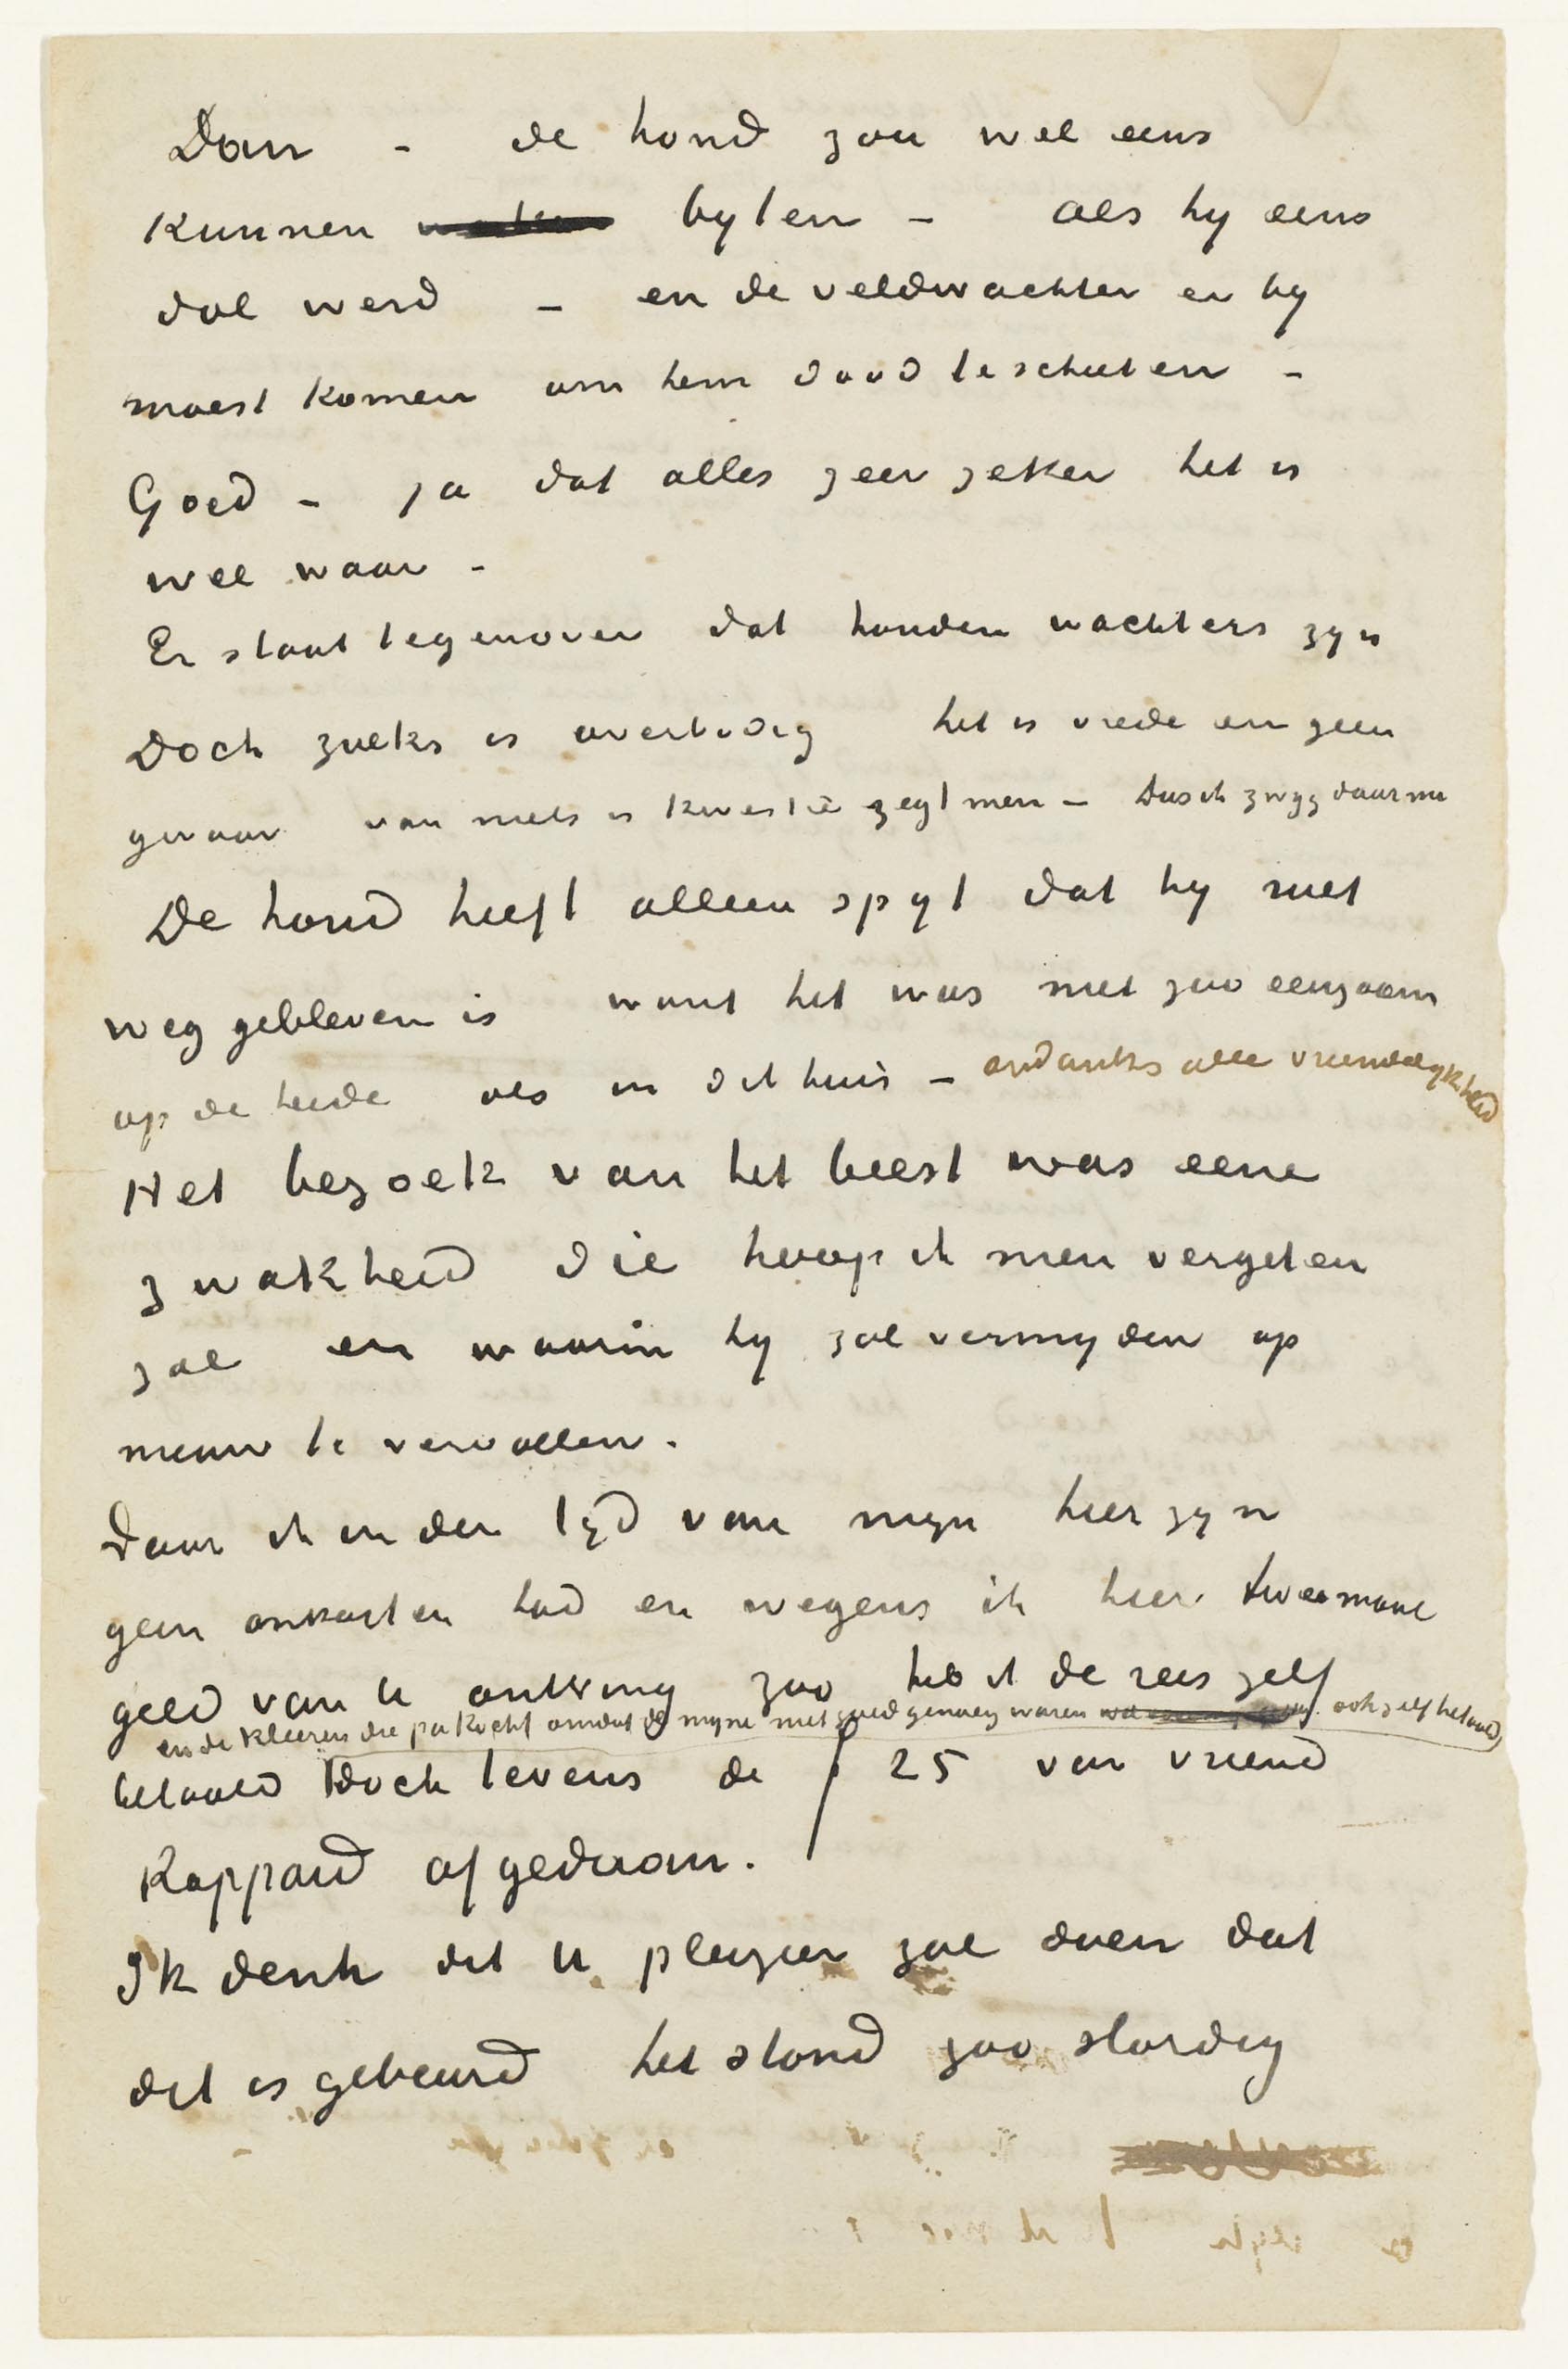 Dan – de hond zou wel eens
kunnen byten – als hy eens
dol werd – en de veldwachter er by
moest komen om hem dood te schieten –
Goed – ja dat alles zeer zeker het is
wel waar –
Er staat tegenover dat honden wachters zyn
Doch zulks is overbodig het is vrede en geen
gevaar van niets is kwestie zegt men – Dus ik zwyg daarvan
De hond heeft alleen spyt dat hy niet
weg gebleven is want het was niet zoo eenzaam
op de heide als in dit huis – ondanks alle vriendelykheid
Het bezoek van het beest was eene
zwakheid die hoop ik men vergeten
zal en waarin hy zal vermyden op
nieuw te vervallen.
Daar ik in den tyd van myn hierzyn
geen onkosten had en wegens ik hier tweemaal
geld van U ontving zoo heb ik de reis zelf
en de kleeren die pa kocht omdat de myne niet goed genoeg waren ook zelf betaald
betaald Doch tevens de ƒ 25 van vriend
Rappard afgedaan.
Ik denk dit U pleizier zal doen dat
dit is gebeurd het stond zoo slordig